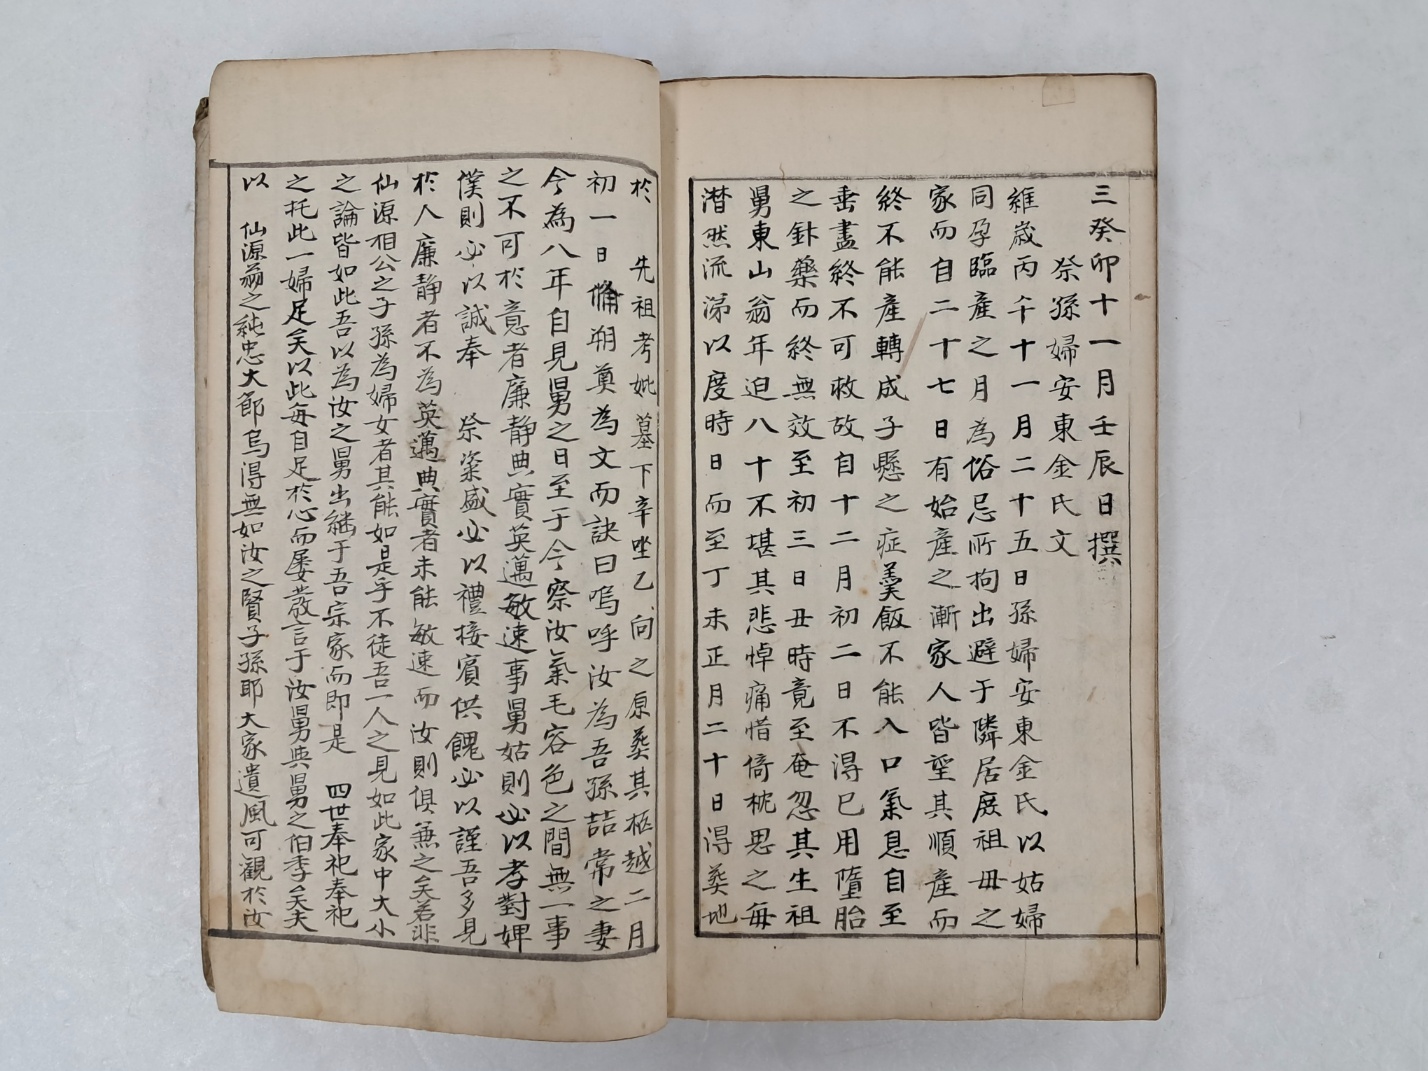 三癸卯十一月壬辰日撰
祭孫婦安東金氏文
維歲丙午十一月二十五日孫婦安東金氏以姑婦
同孕臨產之月為俗忌所拘出避于隣居庶祖母之
家而自二十七日有始產之漸家人皆望其順產而
終不能產轉成子懸之症羹飯不能入口氣息自至
垂盡終不可救故自十二月初二日不得已用墮胎
之針藥而終無效至初三日丑時竟至奄忽其生祖
舅東山翁年迫八十不堪其悲悼痛惜倚枕思之每
潸然流涕以度時日而至丁未正月二十日得葬地
於 先祖考妣墓下辛坐乙向之原葬其柩越二月
初一日脩朔奠為文而訣曰嗚呼汝為吾孫喆常之妻
今為八年自見舅之日至于今察汝氣毛容色之間無一事
之不可於意者廉靜典實英邁敏速事舅姑則必以孝對婢
僕則必以誠奉 祭粢盛必以禮接賓供餽必以謹吾多見
於人廉靜者不為英邁典實者未能敏速而汝則俱兼之矣若非
仙源相公之子孫為婦女者其能如是乎不徒吾一人之見如此家中大小
之論皆如此吾以為汝之舅出継于吾宗家而即是 四世奉祀奉祀
之托此一婦足矣以此每自足於心而屡發言于汝舅與舅之伯季矣夫
以 仙源翁之純忠大節烏得無如汝之賢子孫耶大家遺風可觀於汝